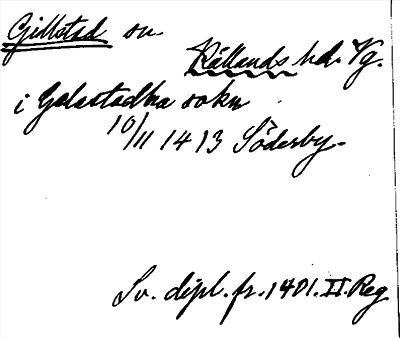 Gillstad sn.
Kållands hd. Vg.
i Gelastadha sokn
10/11 1413 Söderby.
Sv. dipl. fr. 1401. II. Reg